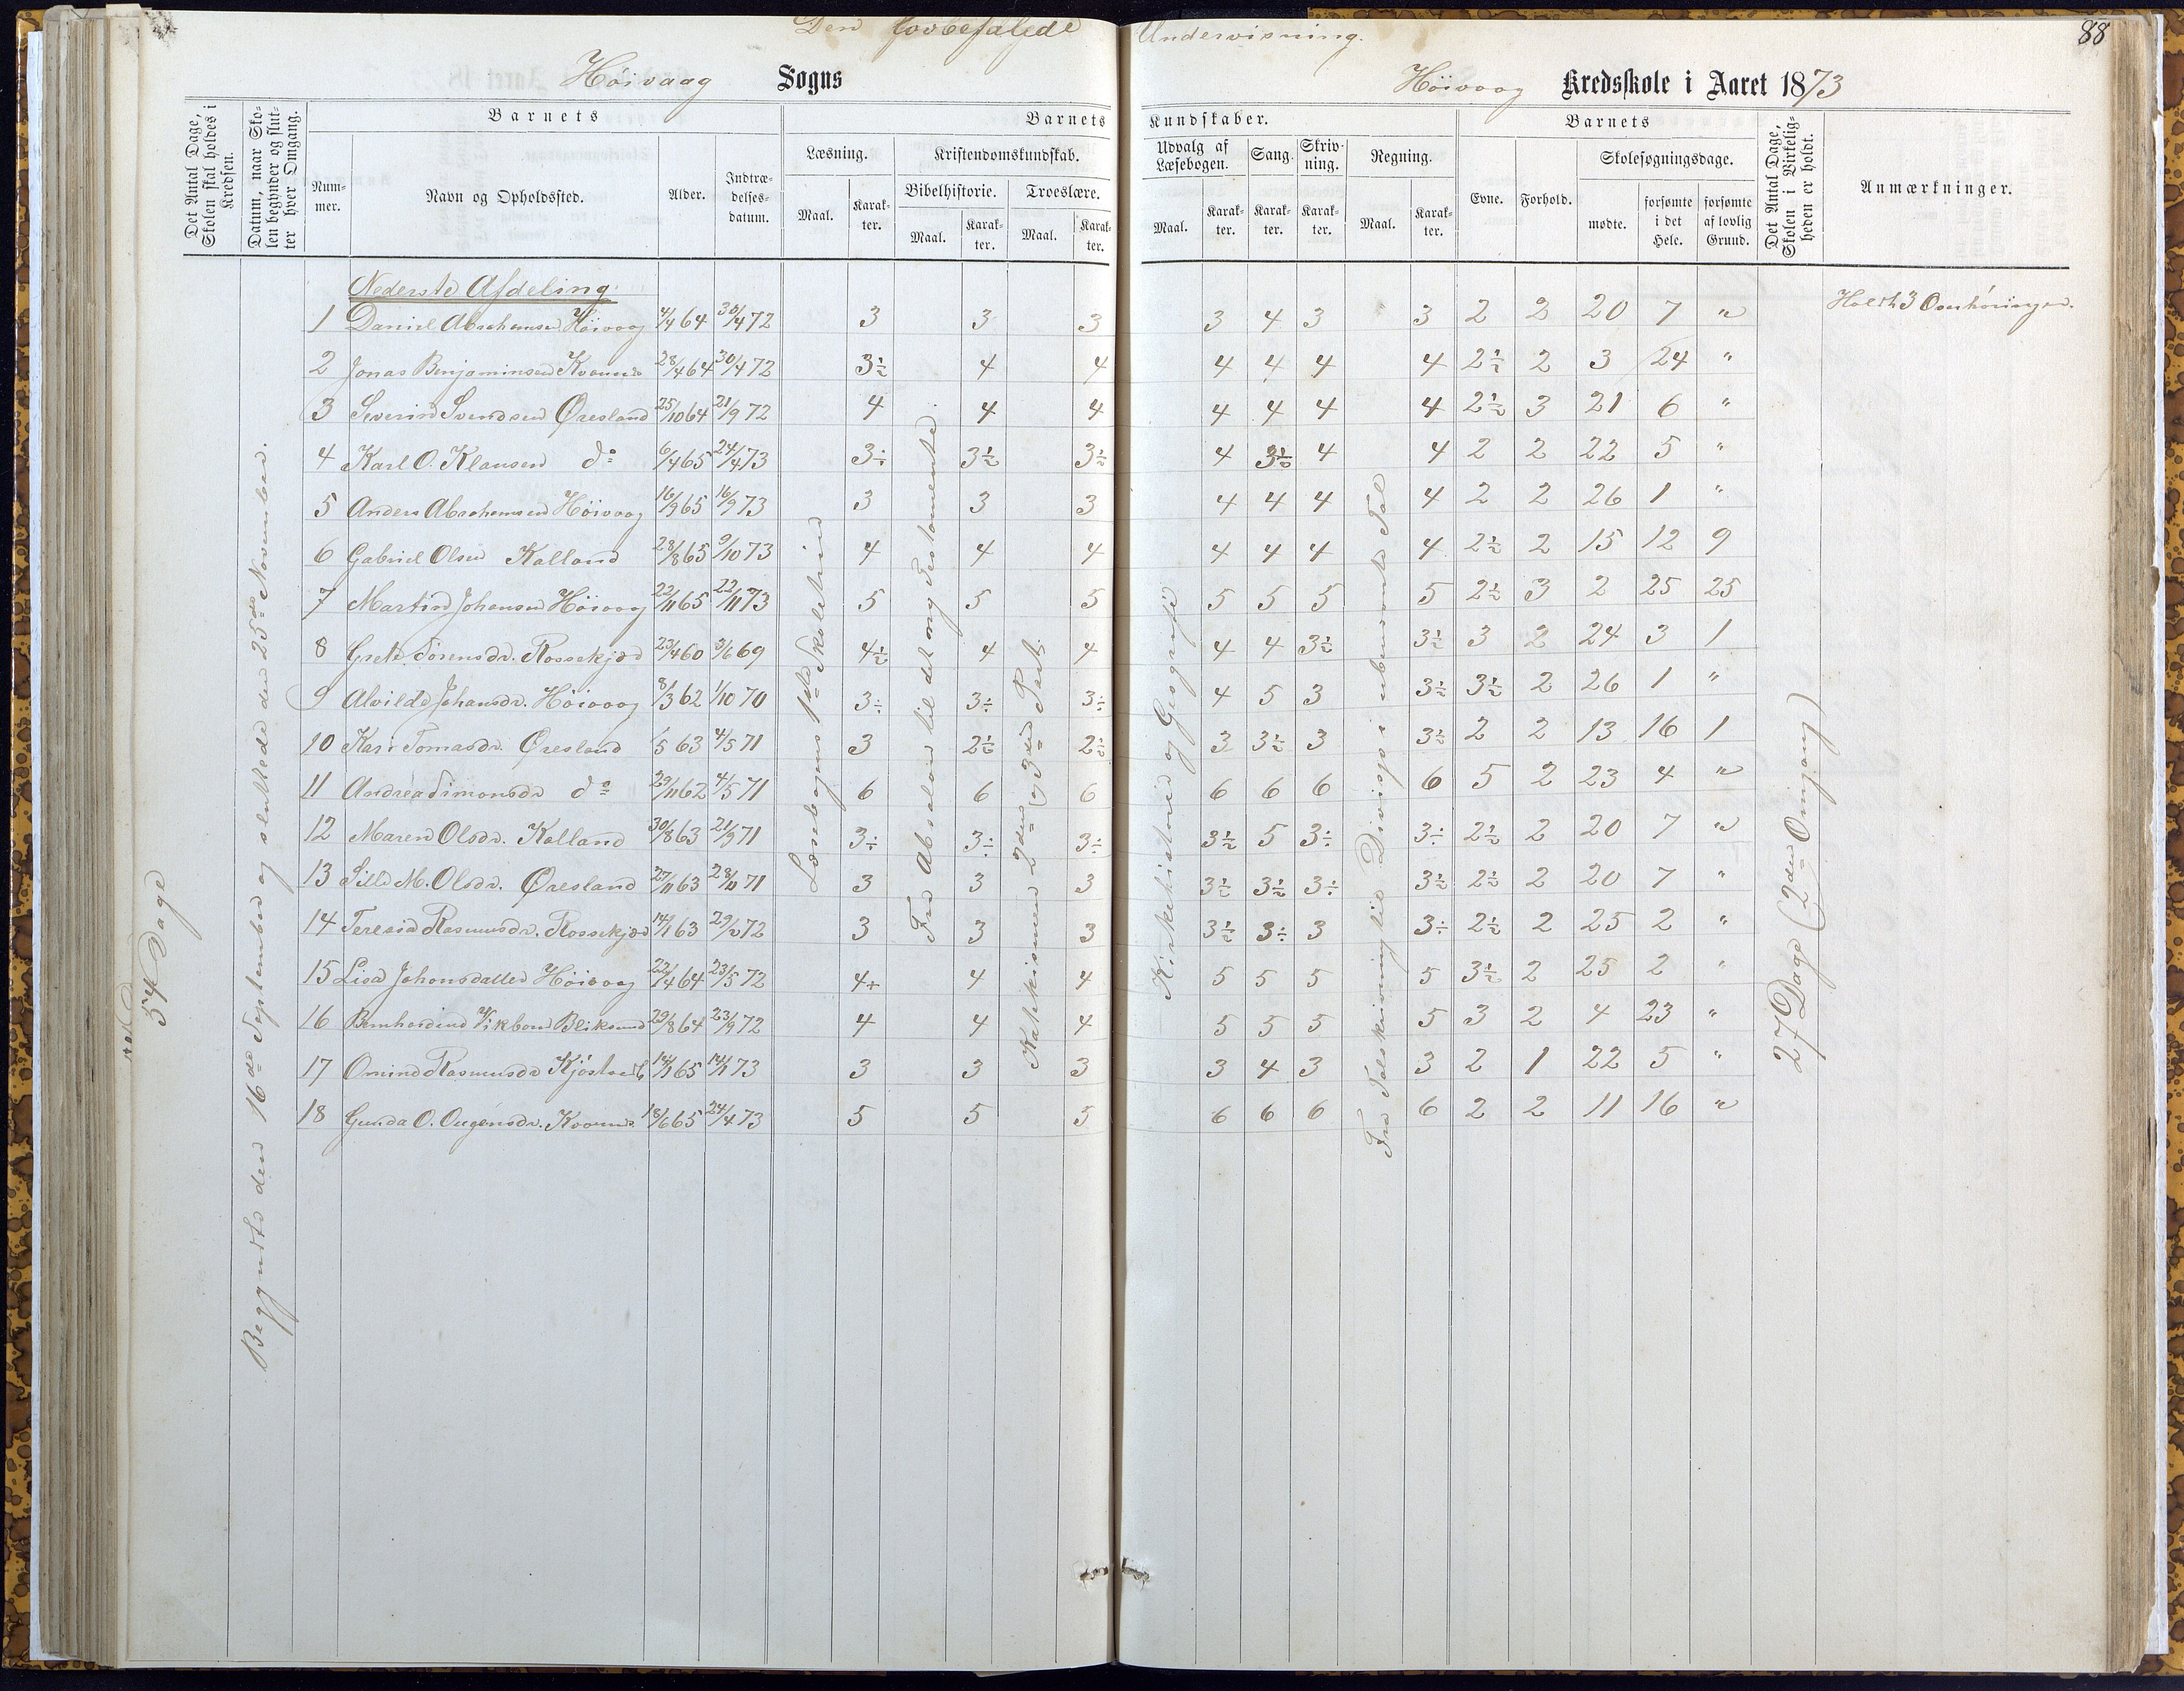 Den lovbefalede Undervisning.
88
Höivaag Sogns
Höivaag Kredsskole i Aaret 1873
Det Antal Dage, Skolen skal holdes i Kredsen.
Datum, naar Skolen begynder og slutter hver Omgang.
Barnets
Nummer.
Navn og Opholdssted.
Alder.
Indtrædelsesdatum.
Barnets Kundskaber.
Læsning.
Maal.
Karakter.
Kristendomskundskab.
Bibelhistorie.
Maal.
Karakter.
Troeslære.
Maal.
Karakter.
Udvalg af Læsebogen.
Maal.
Karakter.
Sang.
Karakter.
Skrivning.
Karakter.
Regning.
Maal.
Karakter.
Barnets
Evne.
Forhold.
Skolesøgningsdage.
mødte.
forsømte i det Hele.
forsømte af lovlig Grund.
Det Antal Dage, Skolen i Virkeligheden er holdt.
Anmærkninger.
54 Dage
Begyndte den 16de September og sluttede den 25de November.
Nederste Afdeling
1 Daniel Abrahamsen Höivaag 4/4 64 30/4 72 3 3 3 3 4 3 3 2 2 20 7 "
2 Jonas Benjaminsen 28/4 64 30/4 72 3½ 4 4 4 4 4 4 2½ 2 3 24 "
3 Severin Svendsen Øresland 25/10 64 21/9 72 4 4 4 4 4 4 4 2½ 3 21 6 "
4 Karl O. Klausen do 6/4 65 24/4 73 3÷ 3½ 3½ 4 3½ 4 4 2 2 22 5 "
5 Anders Abrahamsen Höivaag 16/9 65 16/9 73 3 3 3 4 4 4 4 2 2 26 1 "
6 Gabriel Olsen Kalland 28/8 65 9/10 73 4 4 4 4 4 4 4 2½ 2 15 12 9
7 Martin Johansen Höivaag 22/11 65 22/11 73 5 5 5 5 5 5 5 2½ 3 2 25 25
8 Grete Sörensdr. Rossekjær 23/4 60 3/6 69 4½ 4 4 4 4 3½ 3½ 3 2 24 3 1
9 Alvilde Johansdr. Höivaag 8/3 62 1/10 70 3÷ 3÷ 3÷ 4 5 3 3½ 3½ 2 26 1 "
10 Kari Tomasdr. Øresland /5 63 4/5 71 3 2½ 2½ 3 3½ 3 3½ 2 2 13 16 1
11 Andrea Simonsdr do 29/11 62 4/5 71 6 6 6 6 6 6 6 5 2 23 4 "
12 Maren Olsdr. Kalland 30/8 63 21/9 71 3÷ 3÷ 3÷ 3½ 5 3÷ 3÷ 2½ 2 20 7 "
13 Sille M. Olsdr. Øresland 27/11 63 28/11 71 3 3 3 3½ 3½ 3÷ 3½ 2½ 2 20 7 "
14 Teresia Rasmusdr. Rossekjær 14/1 63 29/2 72 3 3 3 3½ 3÷ 3 3÷ 2½ 2 25 2 "
15 Lisa Johansdatter Höivaag 22/4 64 23/5 72 4+ 4 4 5 5 5 5 3½ 2 25 2 "
16 Bliksund 29/8 64 23/9 72 4 4 4 5 5 5 5 3 2 4 23 "
17 Rasmusdr 14/1 65 14/1 73 3 3 3 3 4 3 3 2 1 22 5 "
18 Gunda O. 18/6 65 24/4 73 5 5 5 6 6 6 6 2 2 11 16 "
Læsebogens 1ste Skoletrin
Fra Absalon til det ny Testamente.
Katekismen 2den og 3die Part.
Kirkehistorie og Geografi
Fra Talskrivning til Division i ubenævnte Tal
27 Dage (2den Omgang)
Holdt 3 Overhöringer.